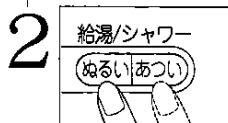 2
給湯/シャワー
ぬるい あつい